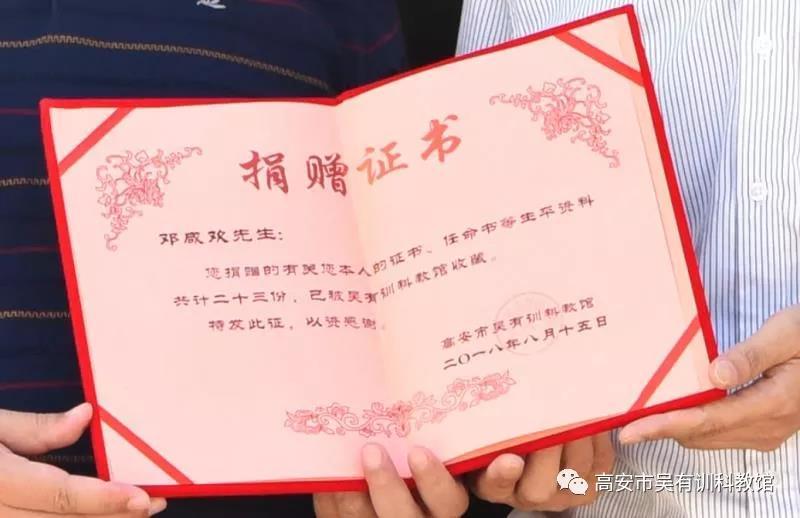 捐赠证书
邓咸欢先生:
您捐赠的有关您本人的证书、任命书等生平资料
共计二十三份,已被吴有训科教馆收藏。
特发此证,以资感谢。
高安市吴有训科教馆
二〇一八年八月十五日
高安市吴有训科教馆